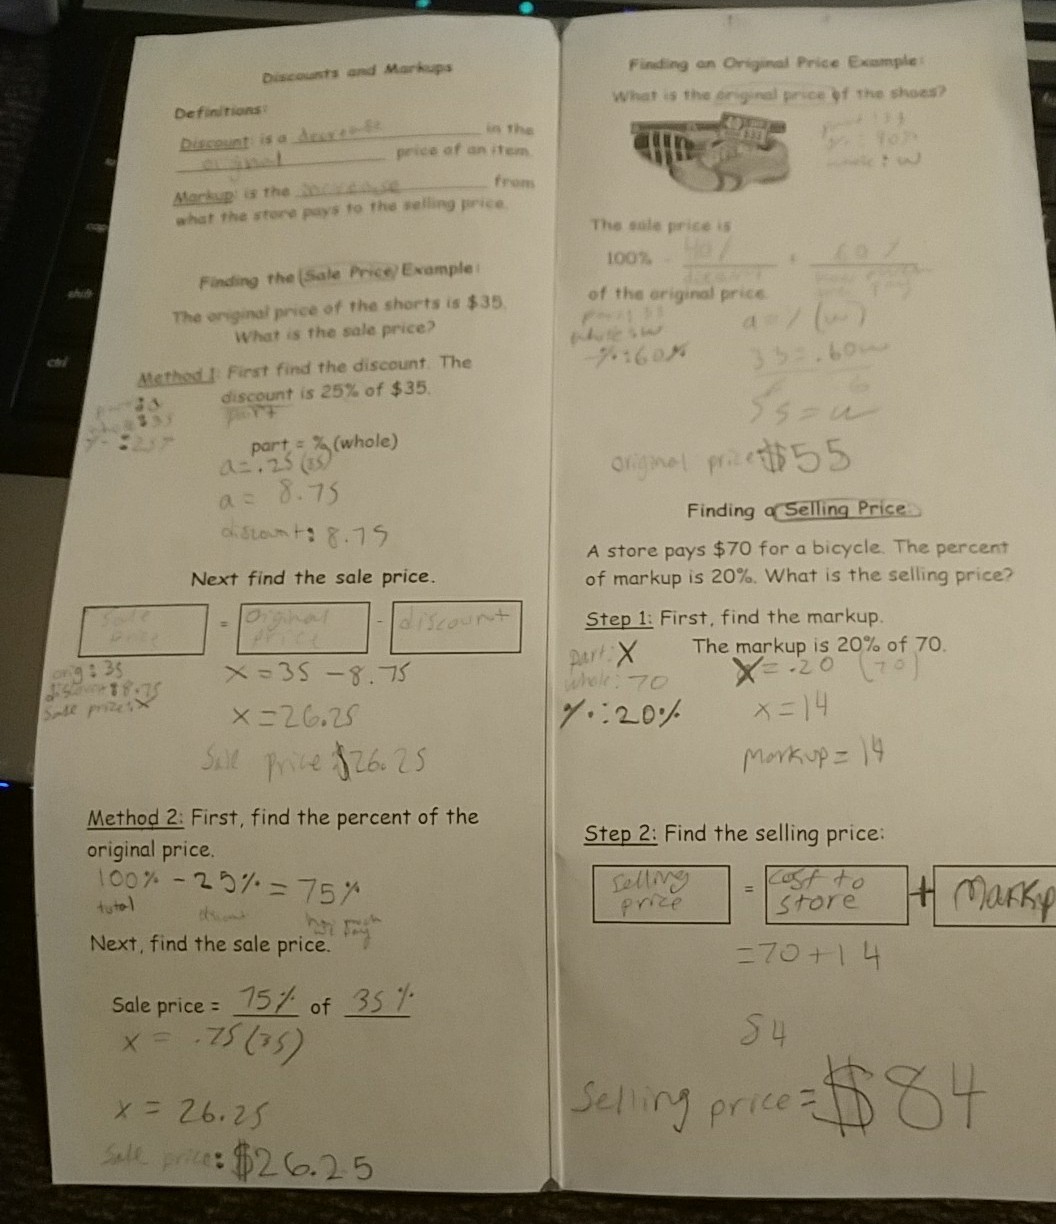 Discounts and Markups
Definitions:
Discount: is a decrease in the
original price of an item.
Markup: is the increase from
what the store pays to the selling price.
Finding the Sale Price Example:
The original price of the shorts is $35.
What is the sale price?
Method 1: First find the discount. The
discount is 25% of $35.
part: a
part
whole: 35
%: 25%
part = % (whole)
a = .25 (35)
a = 8.75
discount: 8.75
Next find the sale price.
Sale price = Original price - discount
orig: 35
discount: 8.75
Sale price: x
x = 35 - 8.75
x = 26.25
Sale price $26.25
Method 2: First, find the percent of the
original price.
100% - 25% = 75%
total discount
Next, find the sale price.
Sale price = 75% of 35%
x = .75(35)
x = 26.25
Sale price: $26.25
Finding an Original Price Example:
What is the original price of the shoes?
part: 33
whole: w
The sale price is
100% - 40% = 60%
discount
of the original price.
part: 33
whole: w
%: 60%
a = % (w)
33 = .60w
55 = w
original price: $55
Finding a Selling Price
A store pays $70 for a bicycle. The percent
of markup is 20%. What is the selling price?
Step 1: First, find the markup.
The markup is 20% of 70.
part: X
whole: 70
%: 20%
X = .20 (70)
x = 14
Markup = 14
Step 2: Find the selling price:
Selling price = Cost to store + Markup
= 70 + 14
84
Selling price = $84